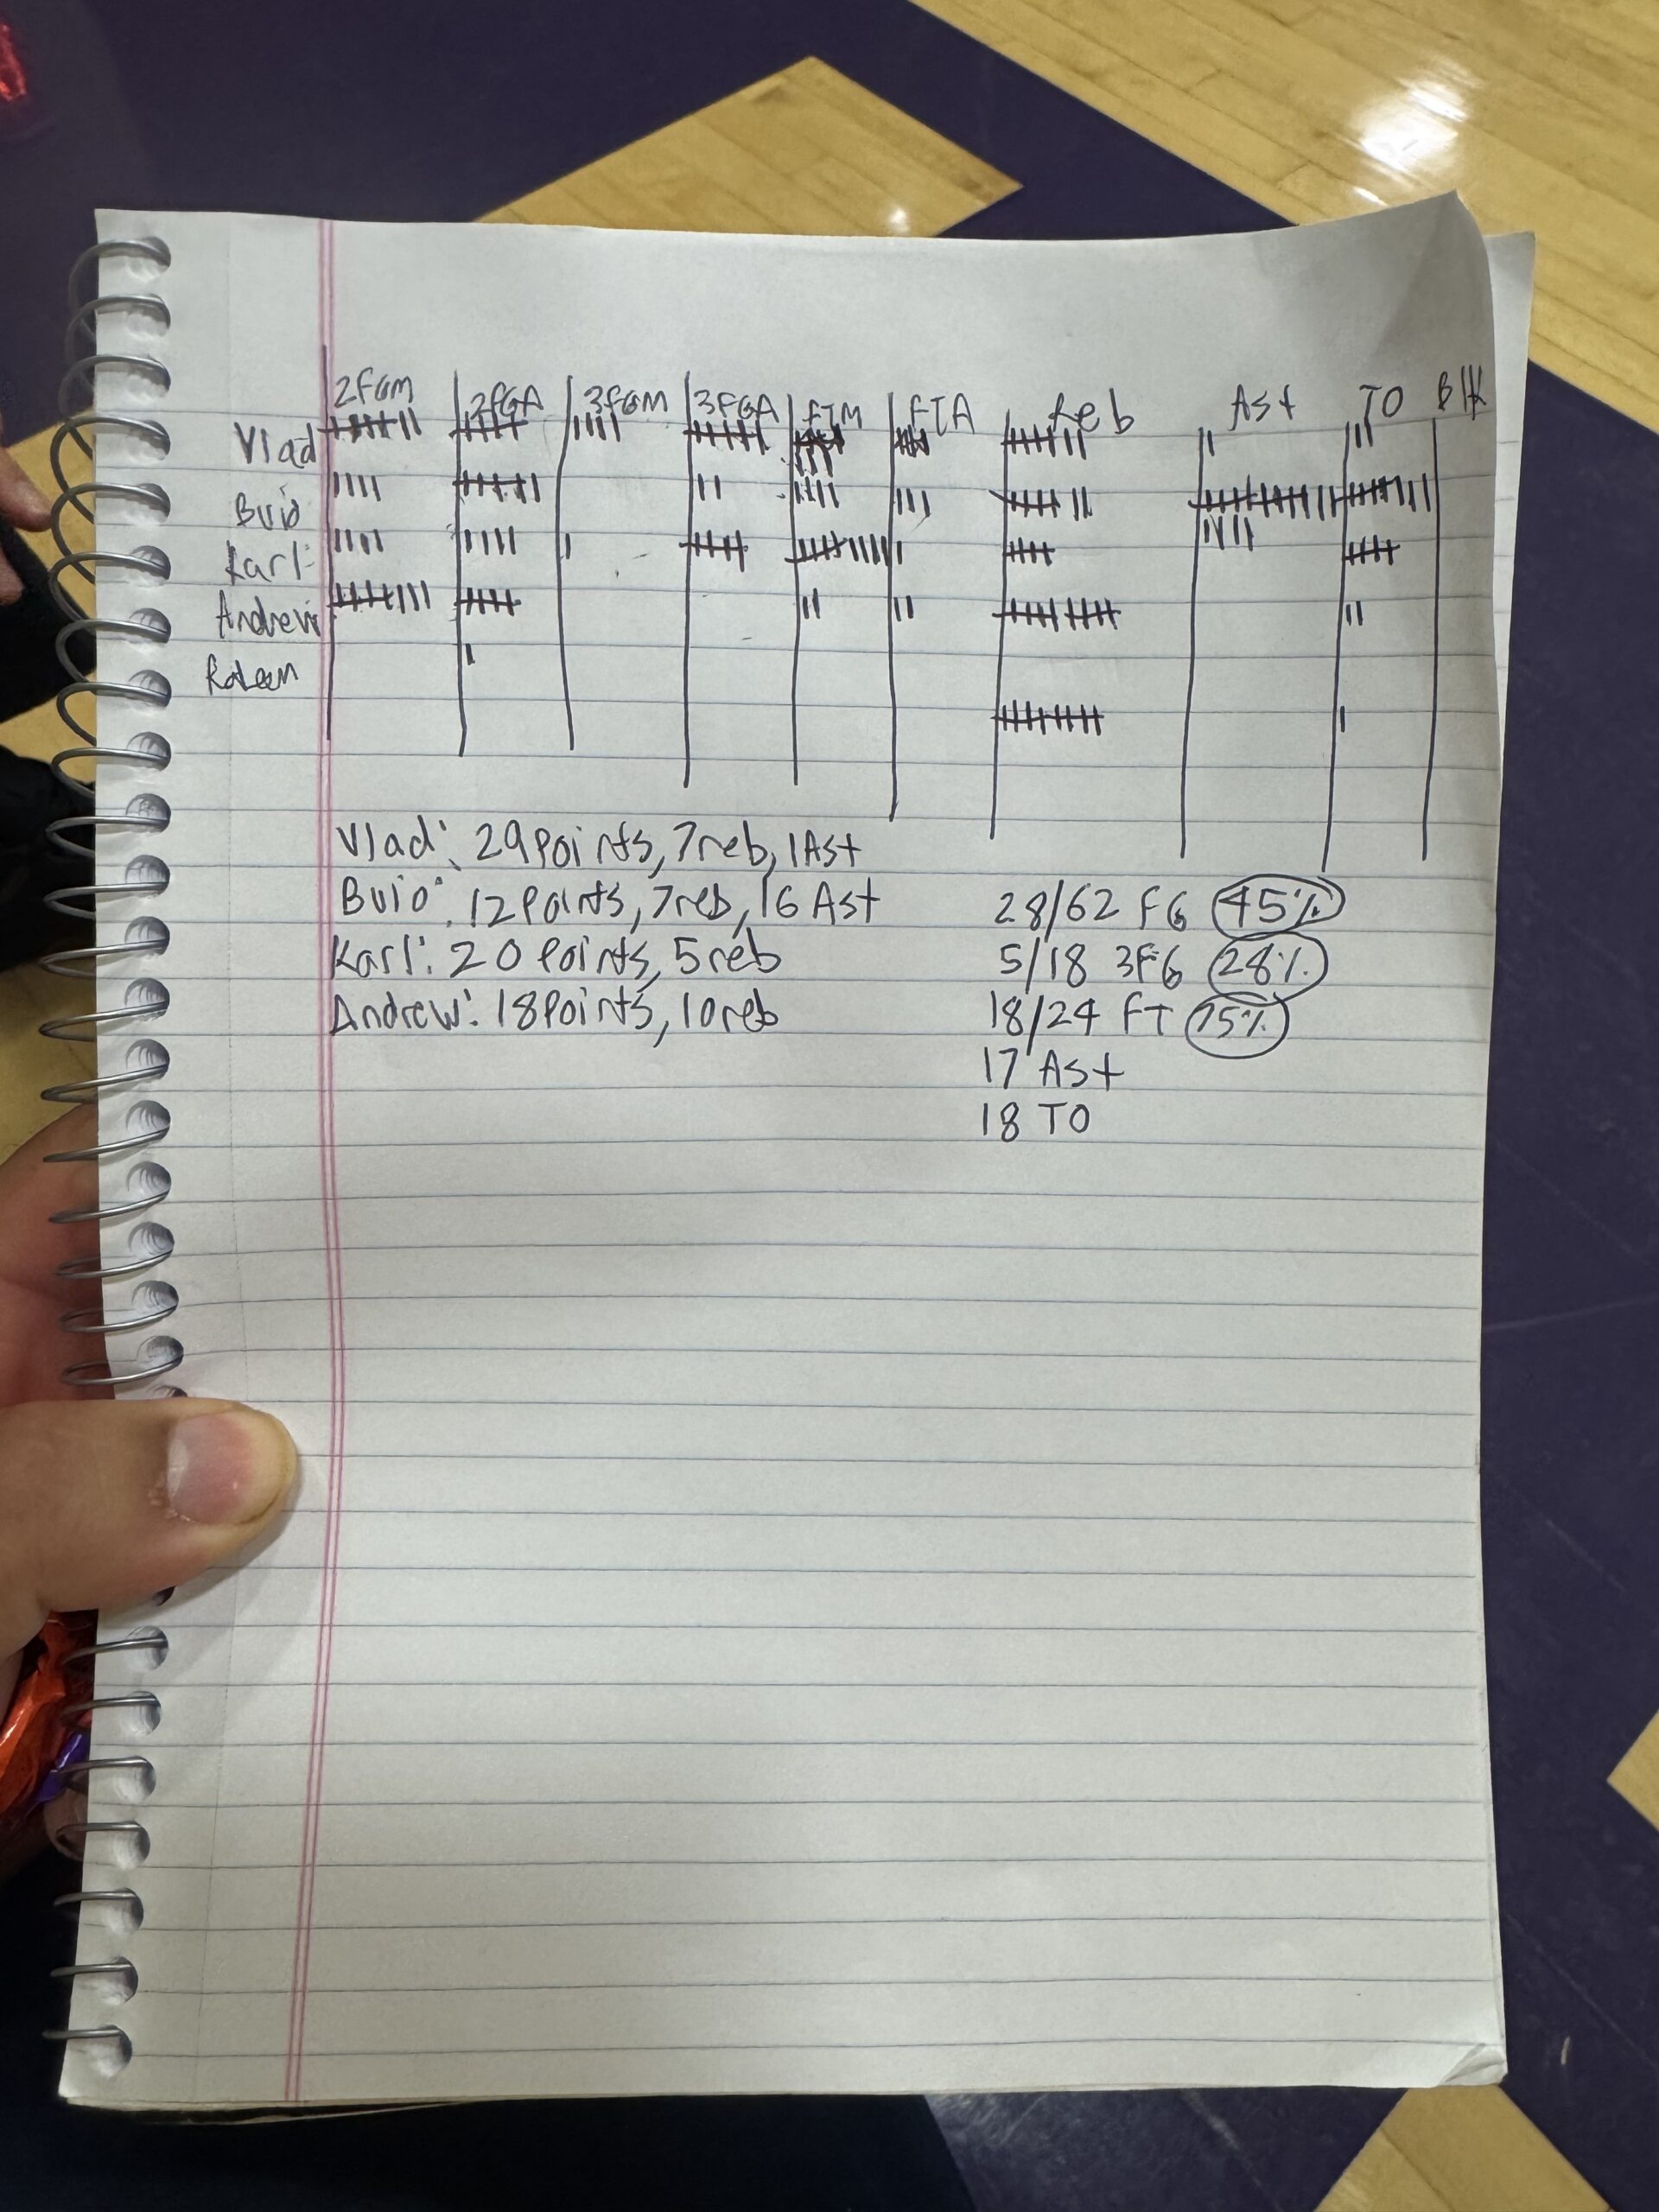 2FGM 2FGA 3FGM 3FGA FTM FTA Reb Ast TO Blk
Vlad
Buio
Karl
Andrew
Vlad: 29 points, 7 reb, 1 Ast
Buio: 12 points, 7 reb, 16 Ast
Karl: 20 points, 5 reb
Andrew: 18 points, 10 reb
28/62 FG 45%
5/18 3FG 28%
18/24 FT 75%
17 Ast
18 TO